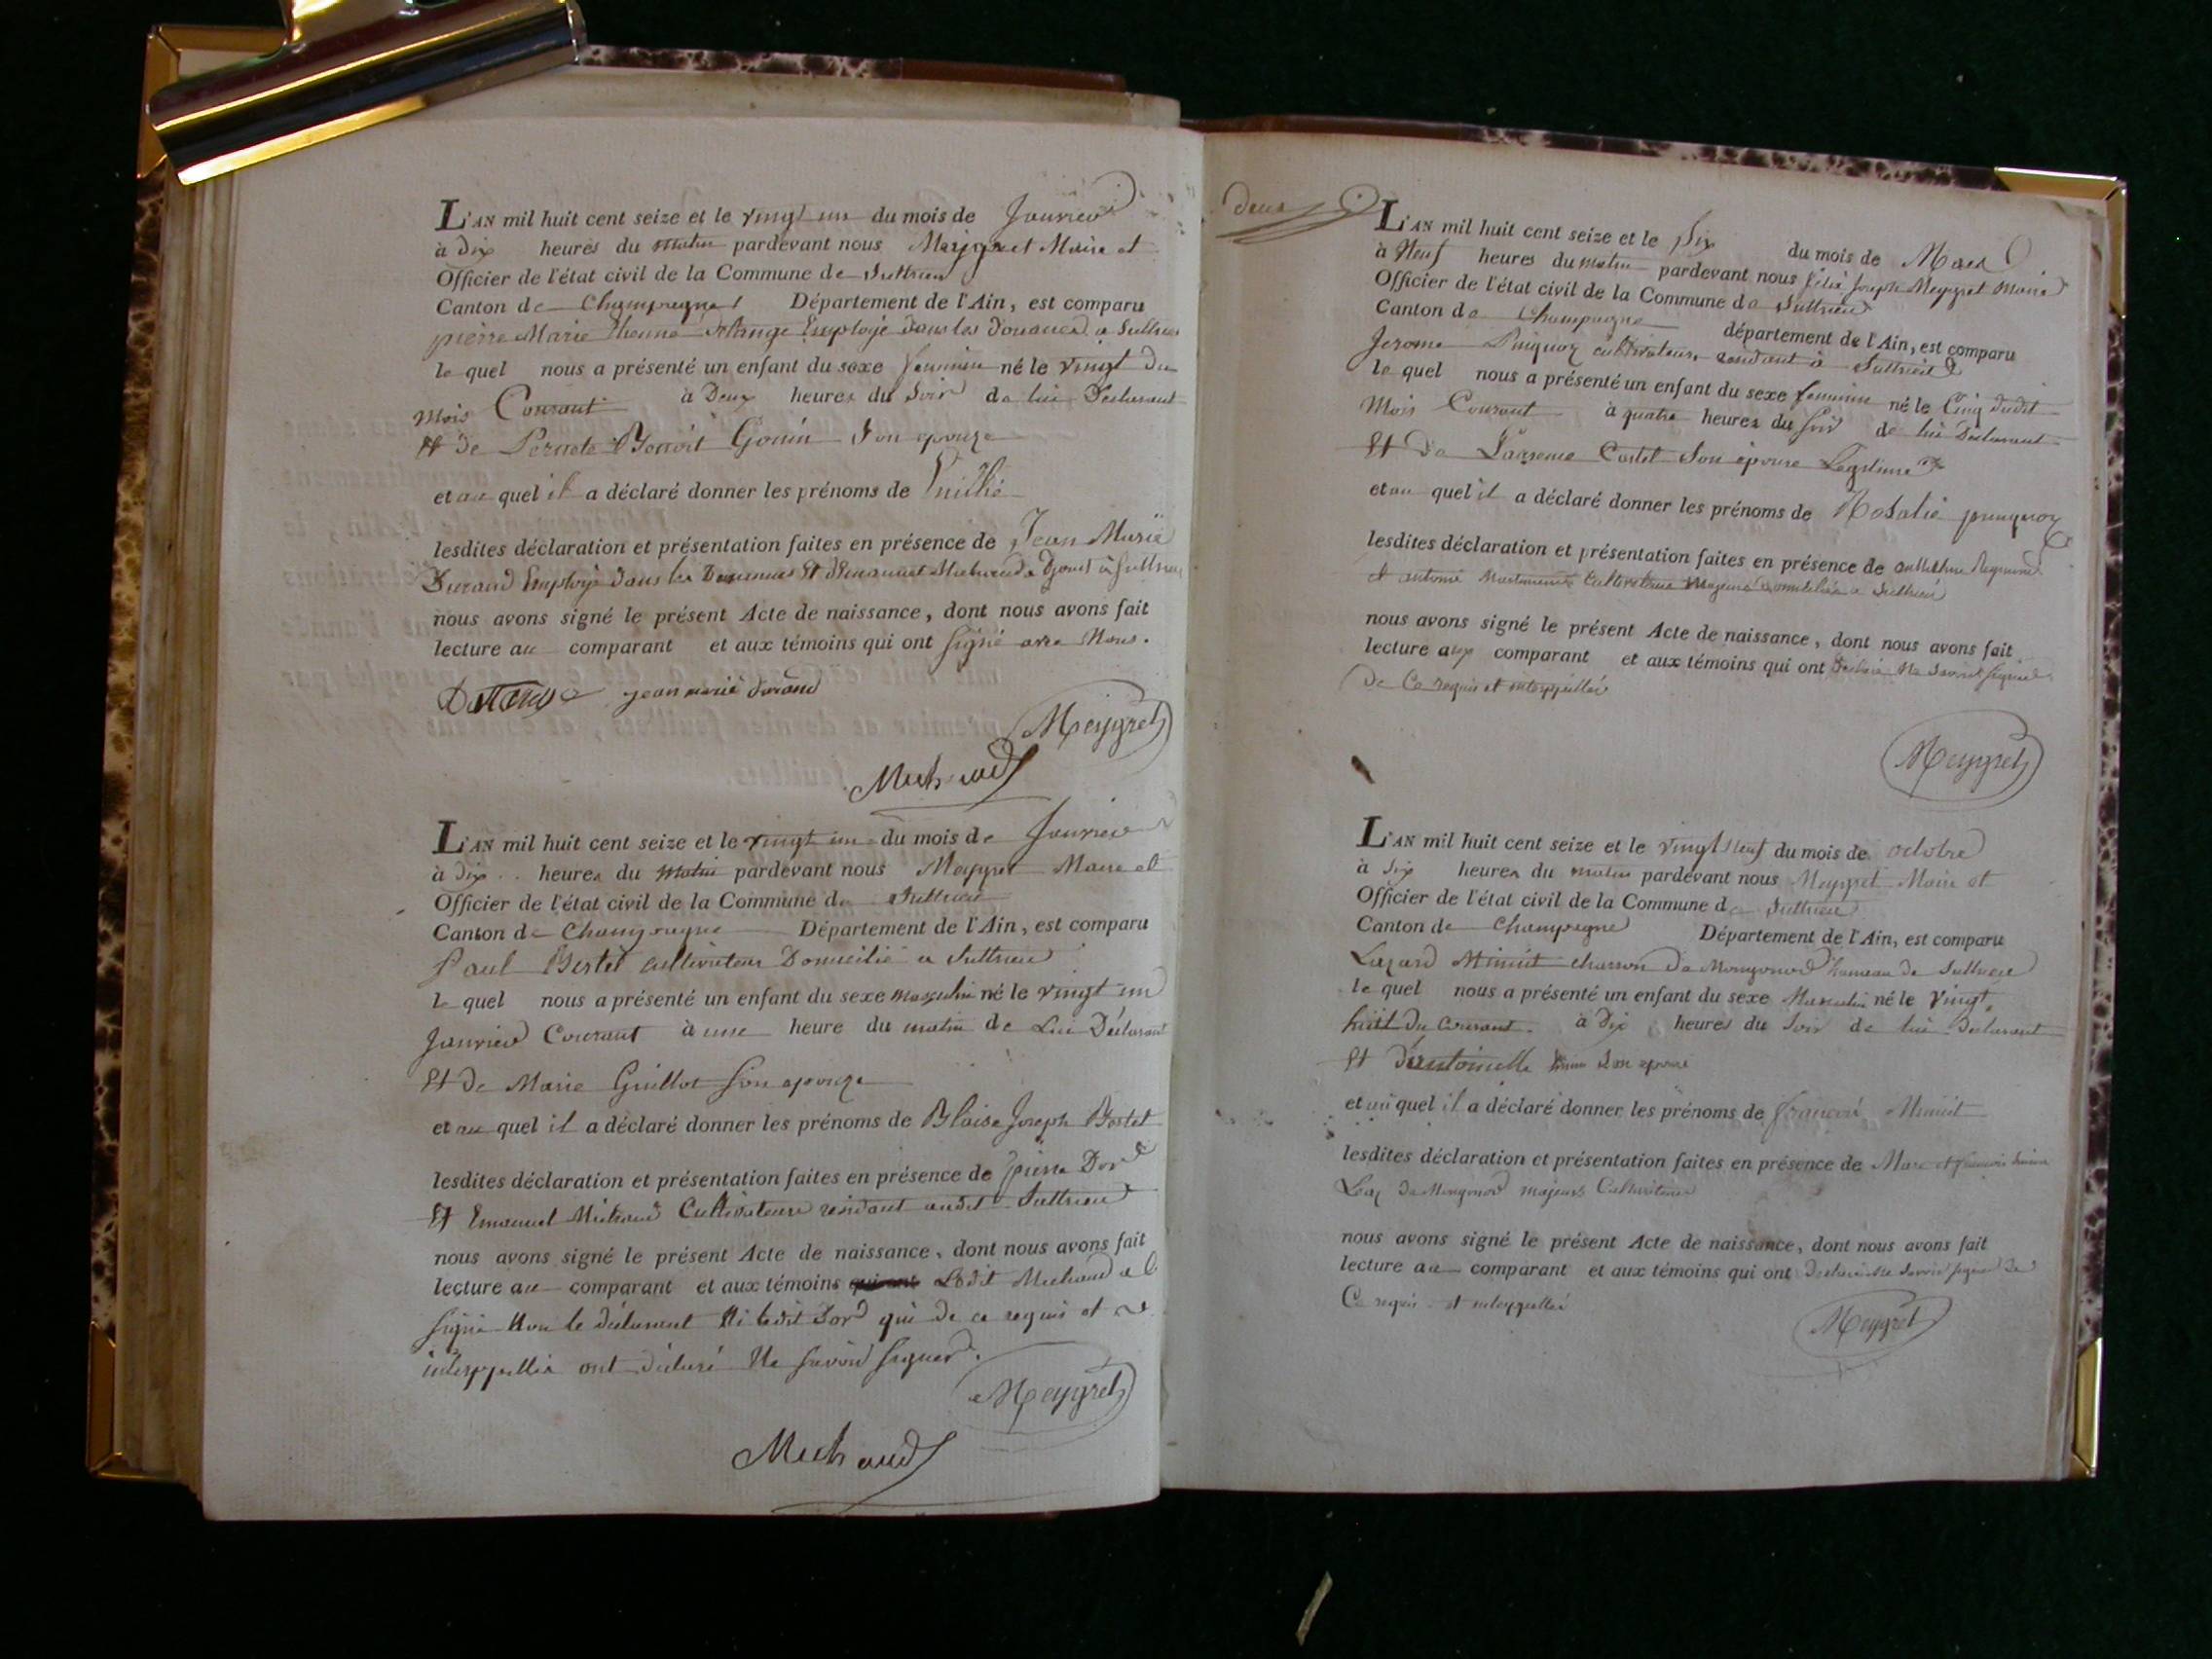 L'AN mil huit cent seize et le vingt un du mois de Janvier
à dix heures du matin pardevant nous Meygret Maire et
Officier de l'état civil de la Commune de Suttrieu
Canton de Champagne Département de l'Ain, est comparu
pierre Marie Employé dans les douanes a Suttrieu
le quel nous a présenté un enfant du sexe feminin né le vingt du
Mois Courant à Deux heures du Soir de lui Declarant
Et de Pernete Benoit Gonin Son epouze
et au quel il a déclaré donner les prénoms de
lesdites déclaration et présentation faites en présence de Jean Marie
Durand Employé dans les Douannes Et Emanuel Michaud a Suttrieu
nous avons signé le présent Acte de naissance, dont nous avons fait
lecture au comparant et aux témoins qui ont signé avec Nous.
jean marie durand
Meygret
Michaud
L'AN mil huit cent seize et le vingt un du mois de Janvier
à dix heures du matin pardevant nous Meygret Maire et
Officier de l'état civil de la Commune de Suttrieu
Canton de Champagne Département de l'Ain, est comparu
Paul Bertet cultivateur Domicilié a Suttrieu
le quel nous a présenté un enfant du sexe masculin né le vingt un
Janvier Courant à une heure du matin de Lui Déclarant
Et de Marie Guillot Son epouze
et au quel il a déclaré donner les prénoms de Blaise Joseph Bertet
lesdites déclaration et présentation faites en présence de pierre Dord
Et Emanuel Michaud Cultivateurs residant audit Suttrieu
nous avons signé le présent Acte de naissance, dont nous avons fait
lecture au comparant et aux témoins qui ont Ledit Michaud a
signé Non le déclarant Ni ledit Dord qui de ce requis et
interppellés ont déclaré Ne savoir signer.
Meygret
Michaud
deux
L'AN mil huit cent seize et le Six du mois de Mars
à Neuf heures du matin pardevant nous félix Joseph Meygret Maire
Officier de l'état civil de la Commune de Suttrieu
Canton de Champagne département de l'Ain, est comparu
Jerome cultivateur residant à Suttrieu
le quel nous a présenté un enfant du sexe feminin né le Cinq dudit
Mois Courant à quatre heures du Soir de lui Declarant
Et De Son épouse Legitime
et au quel il a déclaré donner les prénoms de Rosalie
lesdites déclaration et présentation faites en présence de
et antoine Cultivateurs Majeurs domiciliés a Suttrieu
nous avons signé le présent Acte de naissance, dont nous avons fait
lecture aux comparant et aux témoins qui ont declaré Ne Savoir signer
De Ce requis et interppellés
Meygret
L'AN mil huit cent seize et le vingt neuf du mois de octobre
à Six heures du matin pardevant nous Meygret Maire et
Officier de l'état civil de la Commune de Suttrieu
Canton de Champagne Département de l'Ain, est comparu
Lazard charron De Mongonod hameau de Suttrieu
le quel nous a présenté un enfant du sexe Masculin né le Vingt
huit Du Courant à Dix heures du Soir de lui Declarant
Et D'antoinette Son epouse
et au quel il a déclaré donner les prénoms de françois
lesdites déclaration et présentation faites en présence de Marc et
De Mongonod majeurs Cultivateurs
nous avons signé le présent Acte de naissance, dont nous avons fait
lecture au comparant et aux témoins qui ont declaré Ne Savoir signer De
Ce requis et interppellés
Meygret